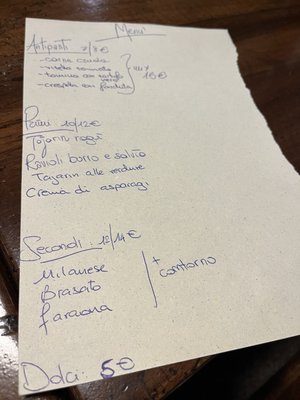 Menù
Antipasti 7/8€
- carne cruda
- vitello tonnato
- tomino con tartufo
nero
- crespella con fonduta
mix
15€
Primi 10/12€
Tajarin ragù
Ravioli burro e salvia
Tajarin alle verdure
Crema di asparagi
Secondi: 12/14€
Milanese
Brasato
faraona
+
contorno
Dolci: 5€